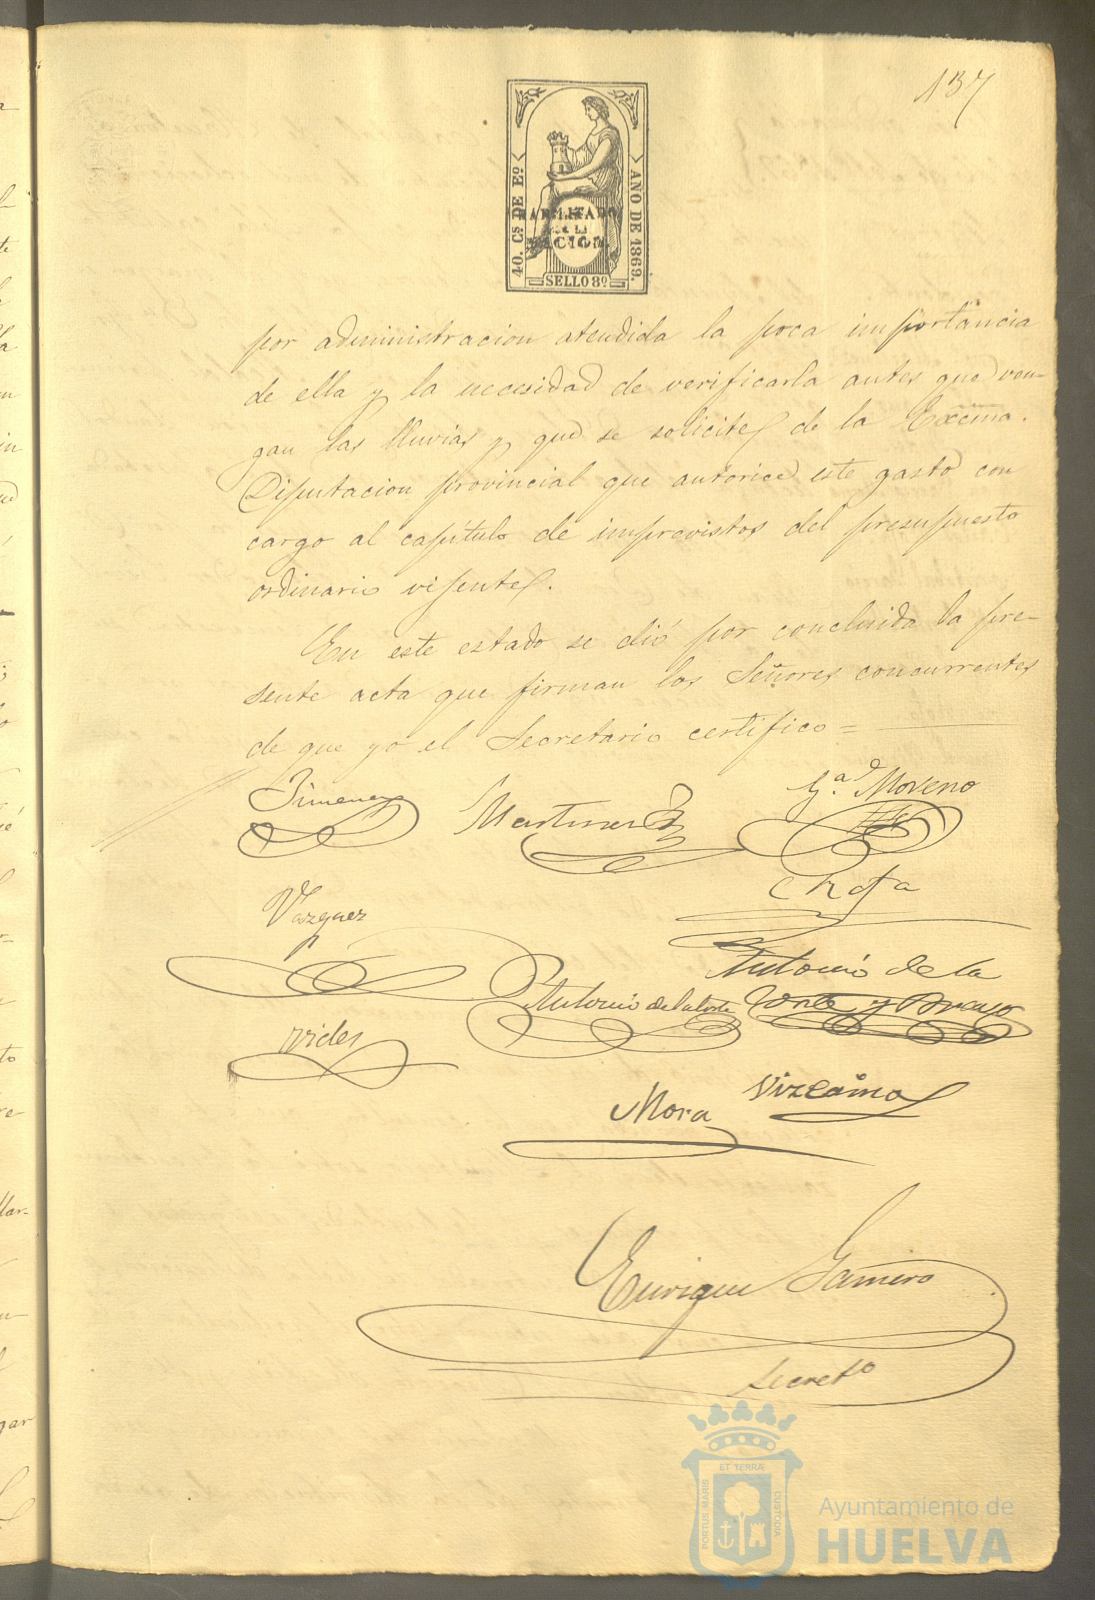 137
40. Cs DE Eº.
AÑO DE 1869.
HABILITADO
POR LA
NACION.
SELLO 8º
por administracion atendida la poca importancia
de ella y la necesidad de verificarla antes que ven-
gan las lluvias y que se solicite de la Excma.
Diputacion provincial que autorice este gasto con
cargo al capítulo de imprevistos del presupuesto
ordinario vijente.
En este estado se dió por concluida la pre-
sente acta que firman los Señores concurrentes
de que yo el Secretario certifico =
Jimenez
Martinez
Gª Moreno
Vazquez
Antonio de la
Torre y
Antonio de la Corte
Vides
Vizcaino
Mora
Enrique Gamero
Secretº
ET TERRÆ
PORTUS MARIS
CUSTODIA
Ayuntamiento de
HUELVA